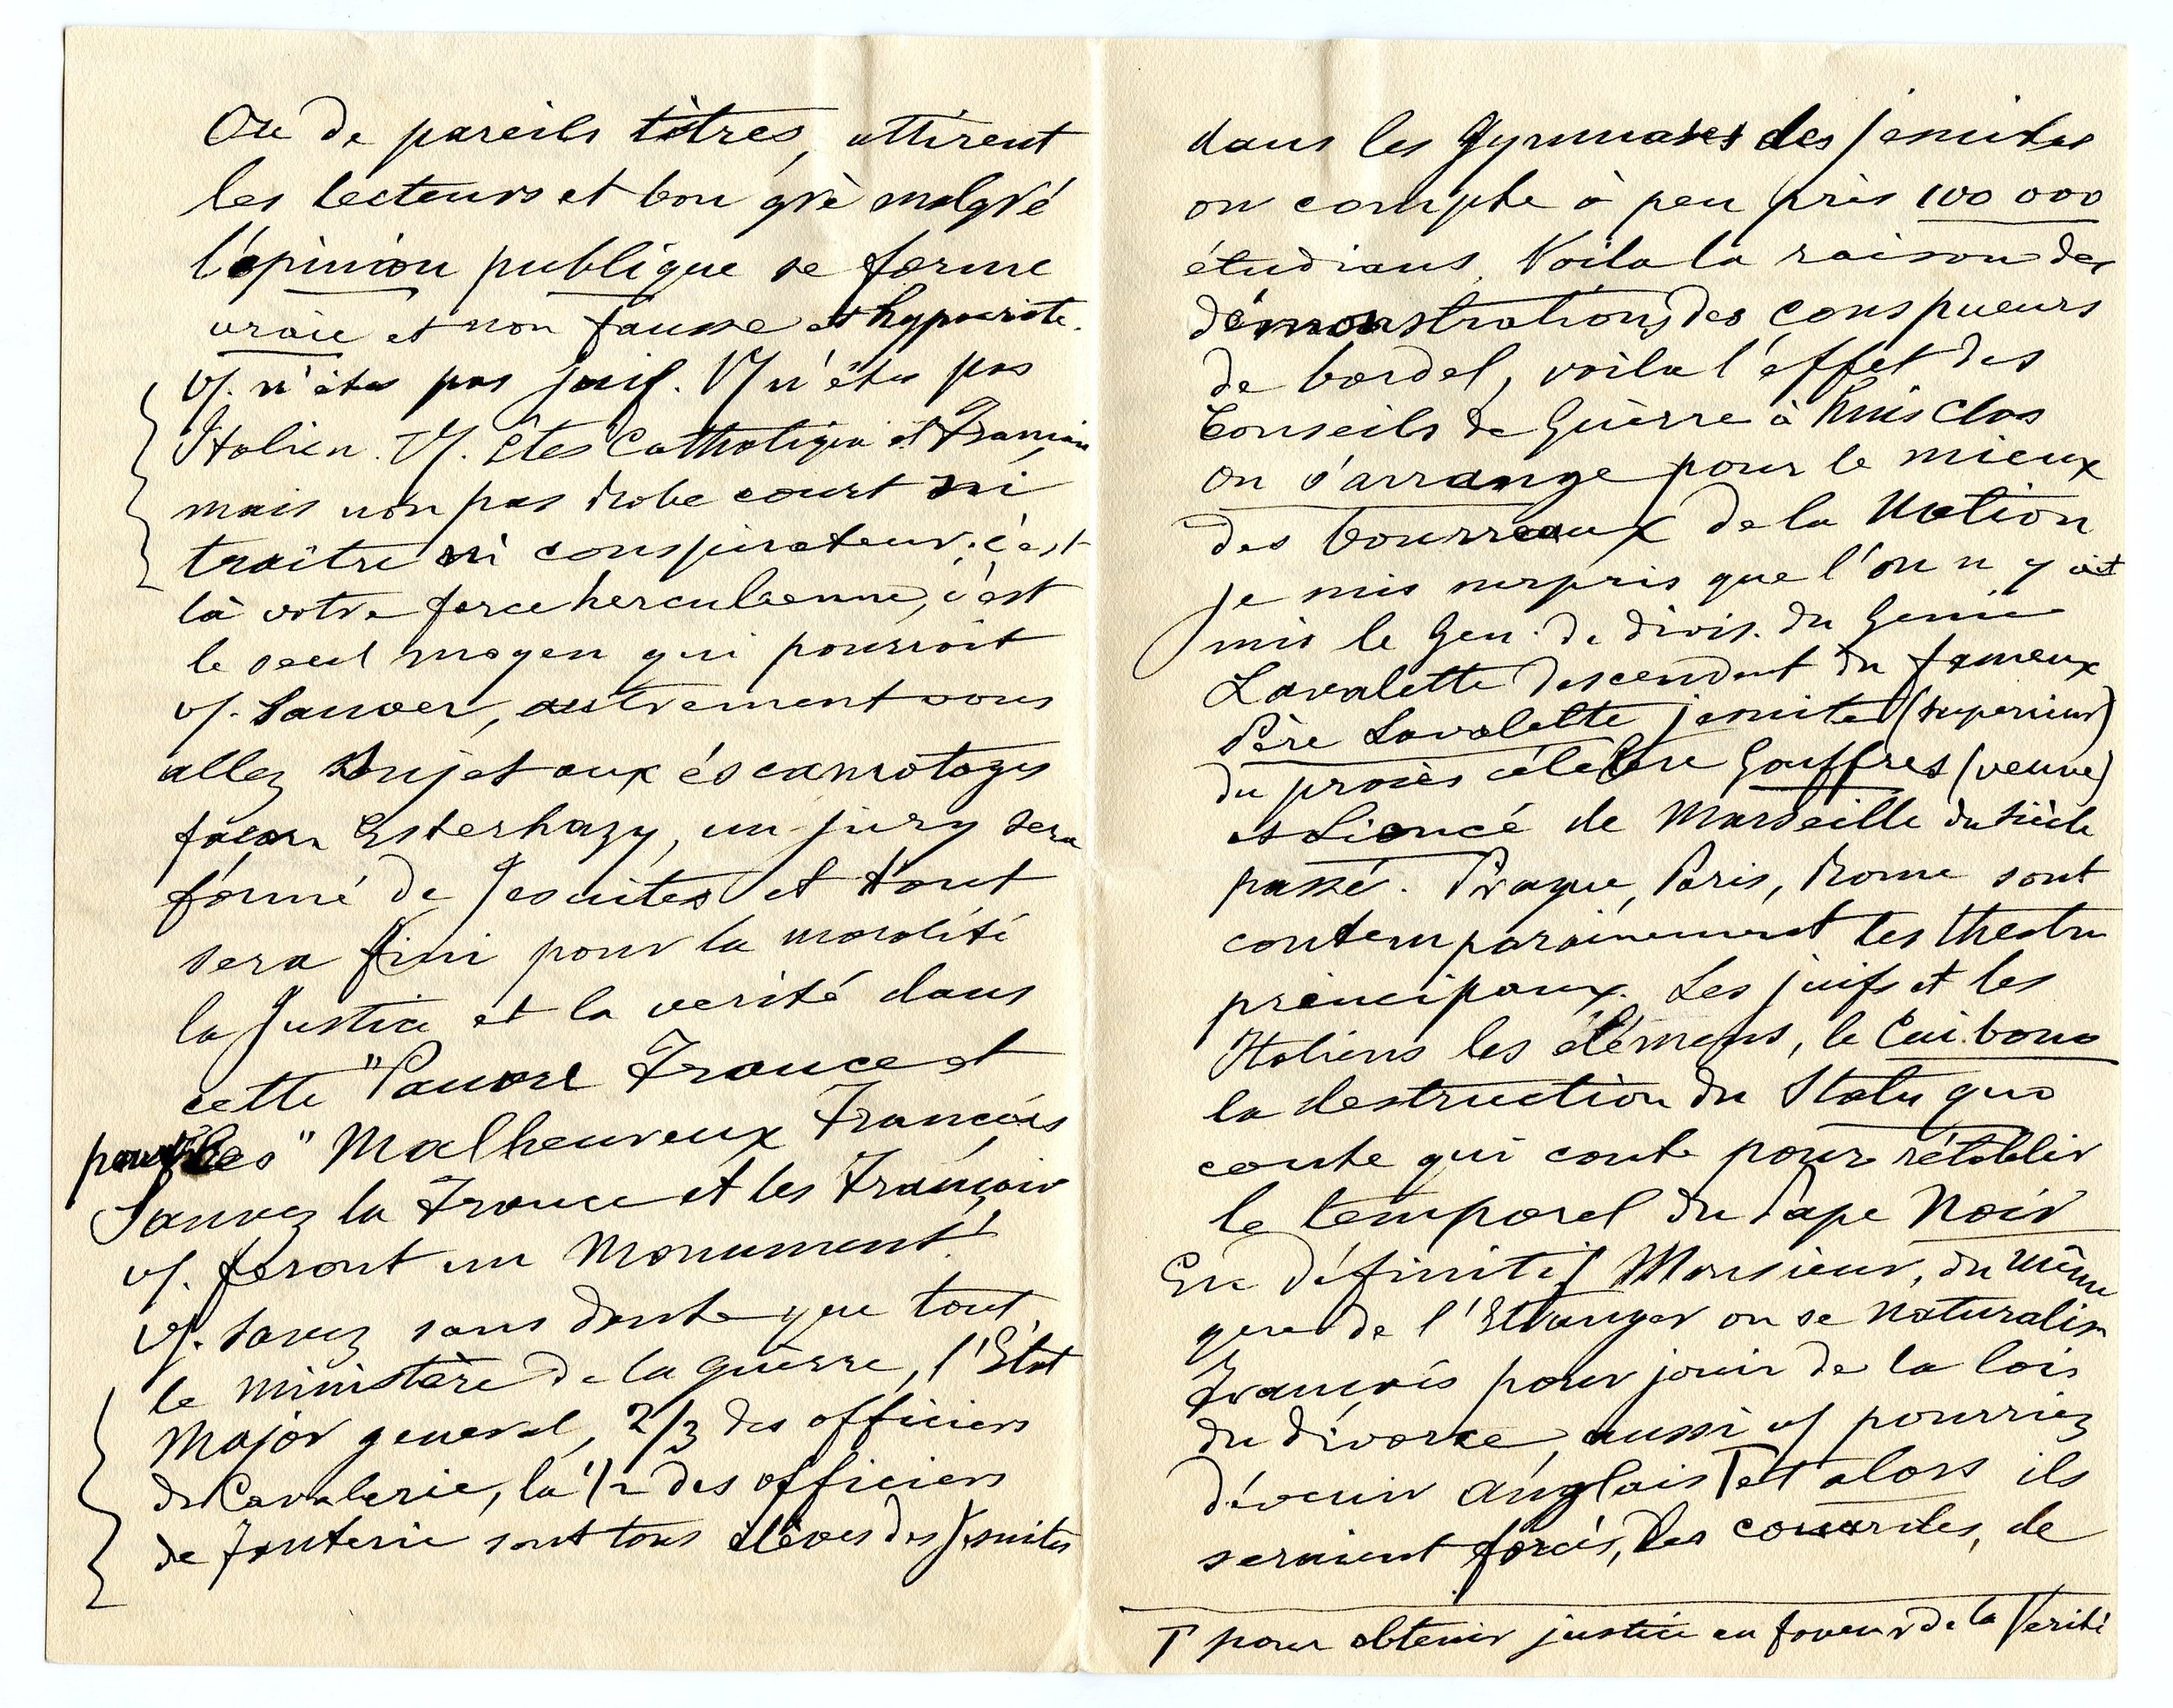 Ou de pareils titres, attirent
les lecteurs et bon grè malgré
l'opinion publique se forme
vraie et non fausse et hypocrite.
V/. n'êtes pas juif. V/ n'êtes pas
Italien. V/. êtes Catholique et Français
mais non pas robe court ni
traître ni conspirateur: c'est
là votre force herculéenne, c'est
le seul moyen qui pourroit
v/. sauver, autrement vous
allez sujet aux éscamotages
façon Esterhazy, un jury sera
formé de Jesuites et tout
sera fini pour la moralité
la Justice et la verité dans
cette "Pauvre France et
pour les "Malheureux Français
Sauvez la France et les Français
v/. feront un Monument!
V/. savez sans doute que tout
le ministère de la guèrre, l'Etat
Major general, 2/3 des officiers
de Cavalerie, la 1/2 des officiers
de Fanterie sont tous élèves des Jesuites
dans les Gymnases des Jesuites
on compte à peu près 100 000
étudians. Voila la raison des
démonstrations, des conspueurs
de bordel, voila l'effet des
Conseils de Guèrre à huis clos
on s'arrange pour le mieux
des bourreaux de la Nation
je suis surpris que l'on n'y ait
mis le Gen. de divis. du Genie
Lavalette descendant du fameux
Père Lavalette jesuite (superieur)
du procès célèbre Gouffres (veuve)
et Lioncé de Marseille du siècle
passé. Prague, Paris, Rome sont
contemporainement les theatre
principaux. Les juifs et les
Italiens les élémens, le Cui bono
la destruction du Statu quo
coute qui coute pour rétablir
le temporel du Pape Noir
En définitif Monsieur, du même
que de l'Etranger on se naturalise
Français pour jouir de la lois
du divorce, aussi v/ pourriez
dévenir anglais T et alors ils
seraient forcés, les couardes, de
T pour obtenir justice en faveur de la Verité